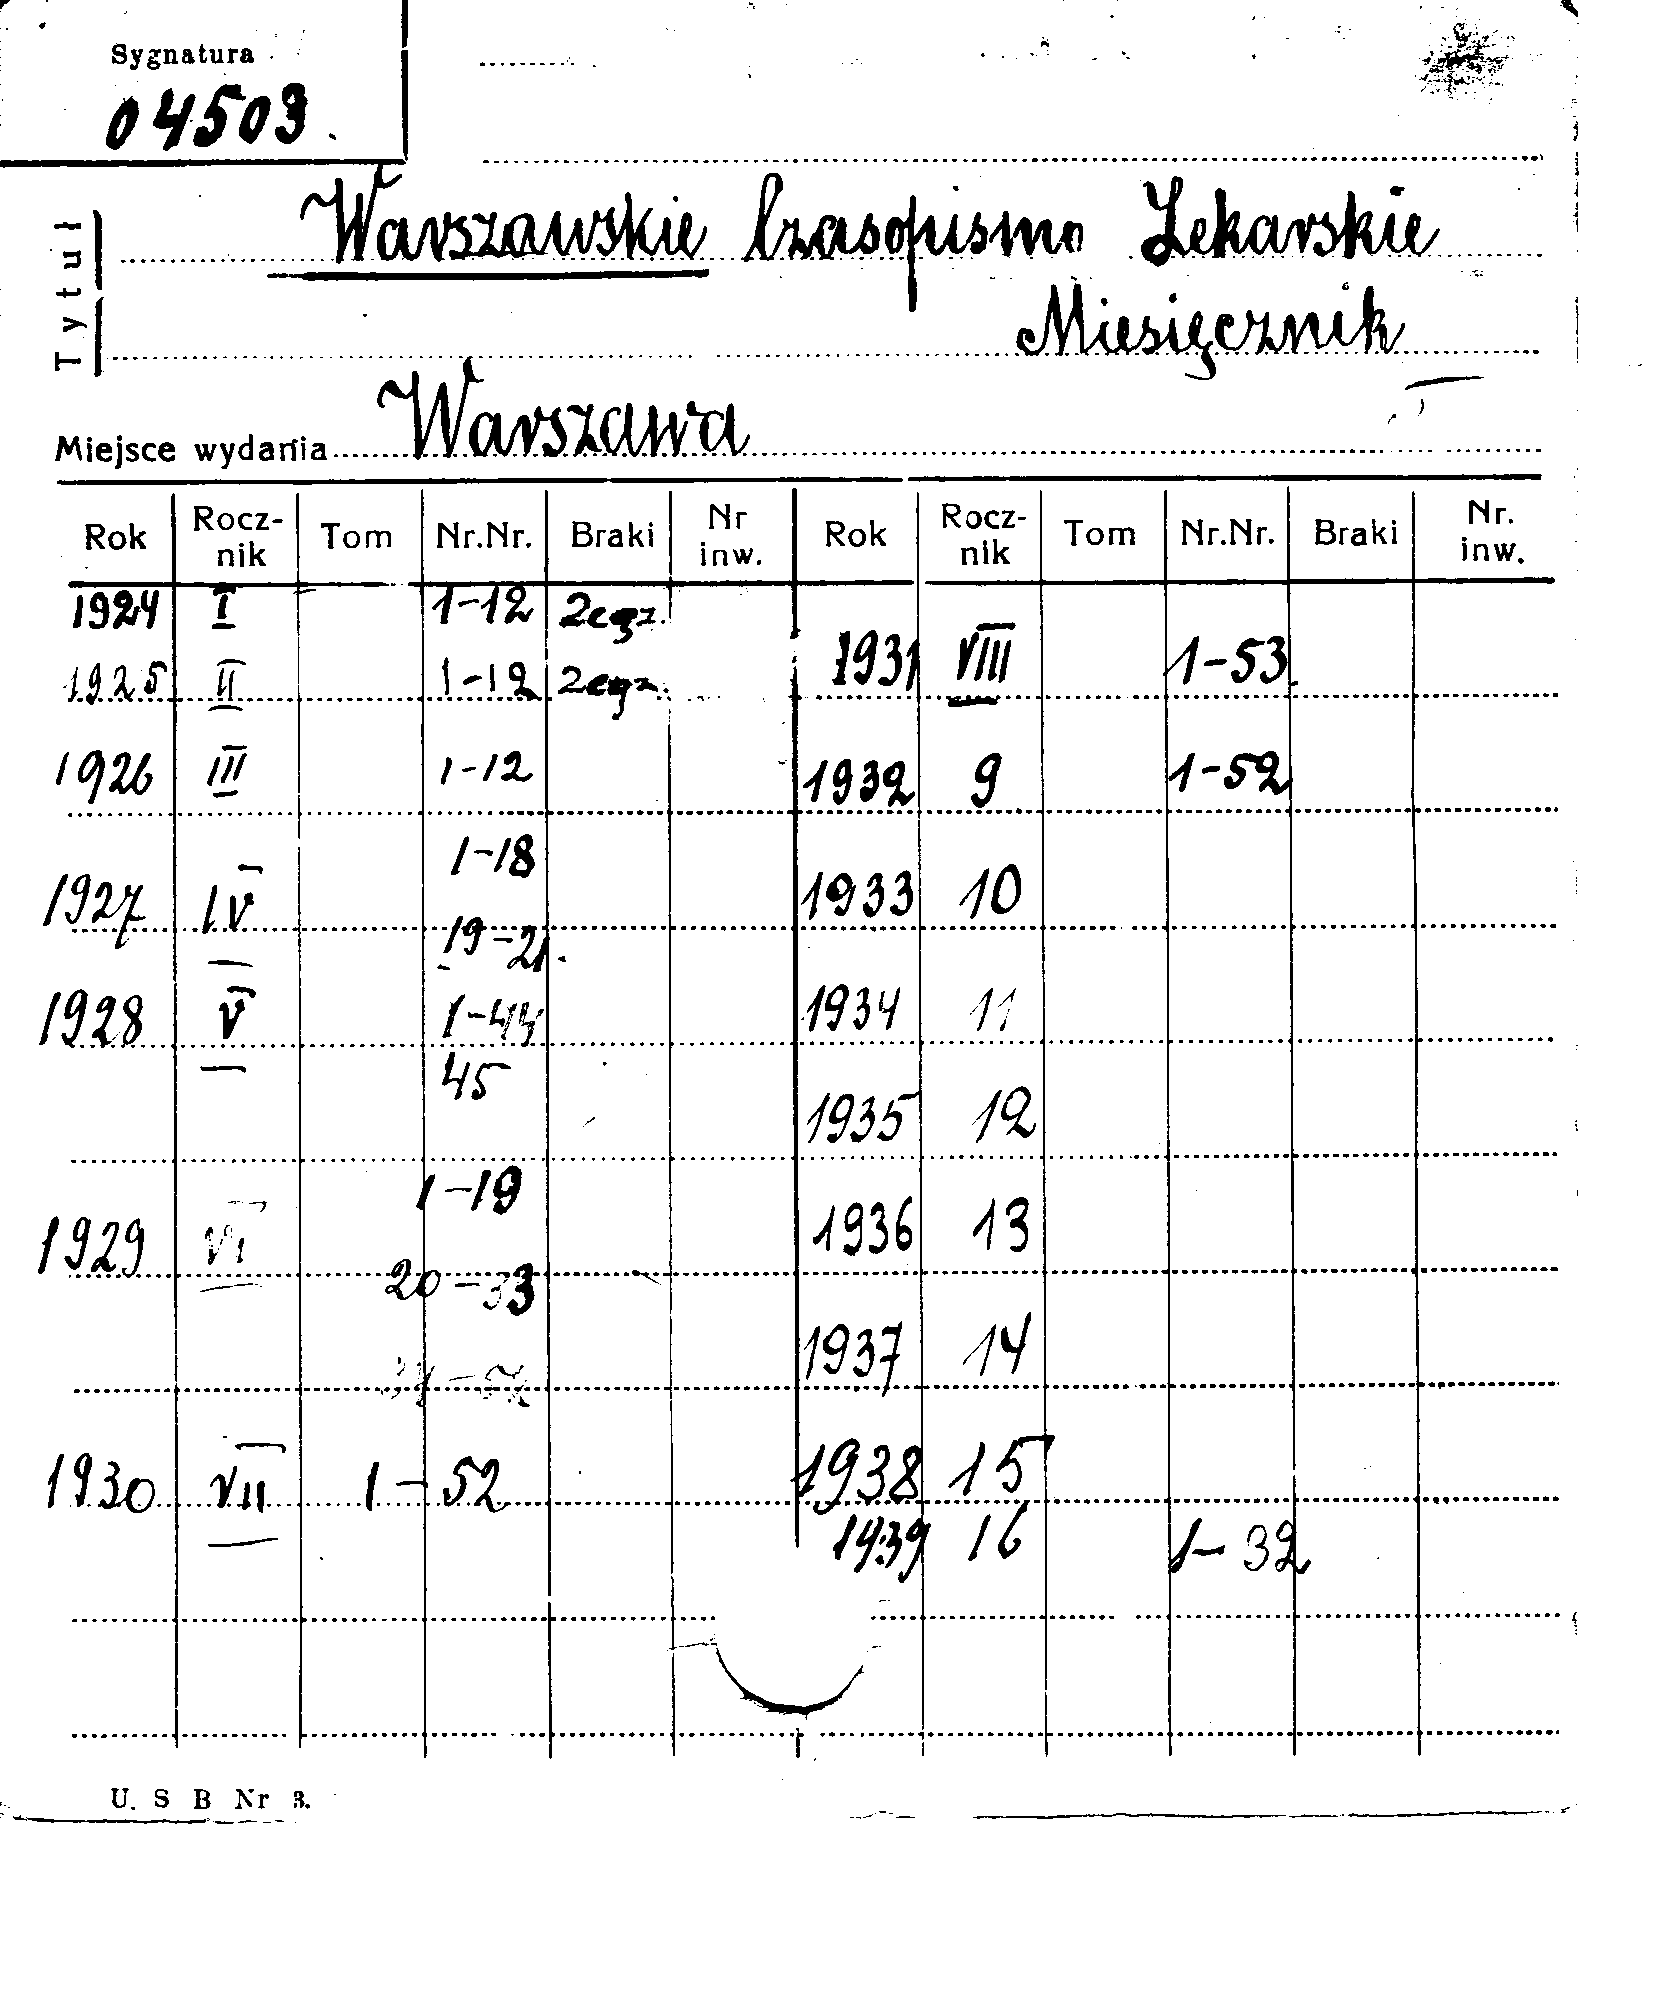 Sygnatura
04503
Tytuł
Warszawskie Czasopismo Lekarskie
Miesięcznik
Miejsce wydania Warszawa
Rok Rocz-nik Tom Nr.Nr. Braki Nr inw. Rok Rocz-nik Tom Nr.Nr. Braki Nr. inw.
1924 I 1-12 2egz.
1931 VIII 1-53
1925 II 1-12 2egz.
1926 III 1-12
1932 9 1-52
1-18
1927 IV
1933 10
19-21.
1928 V 1-44
1934 11
45
1935 12
1-19
1929 VI
1936 13
20-33
1937 14
1930 VII 1-52
1938 15
1939 16 1-32
U. S B Nr 3.